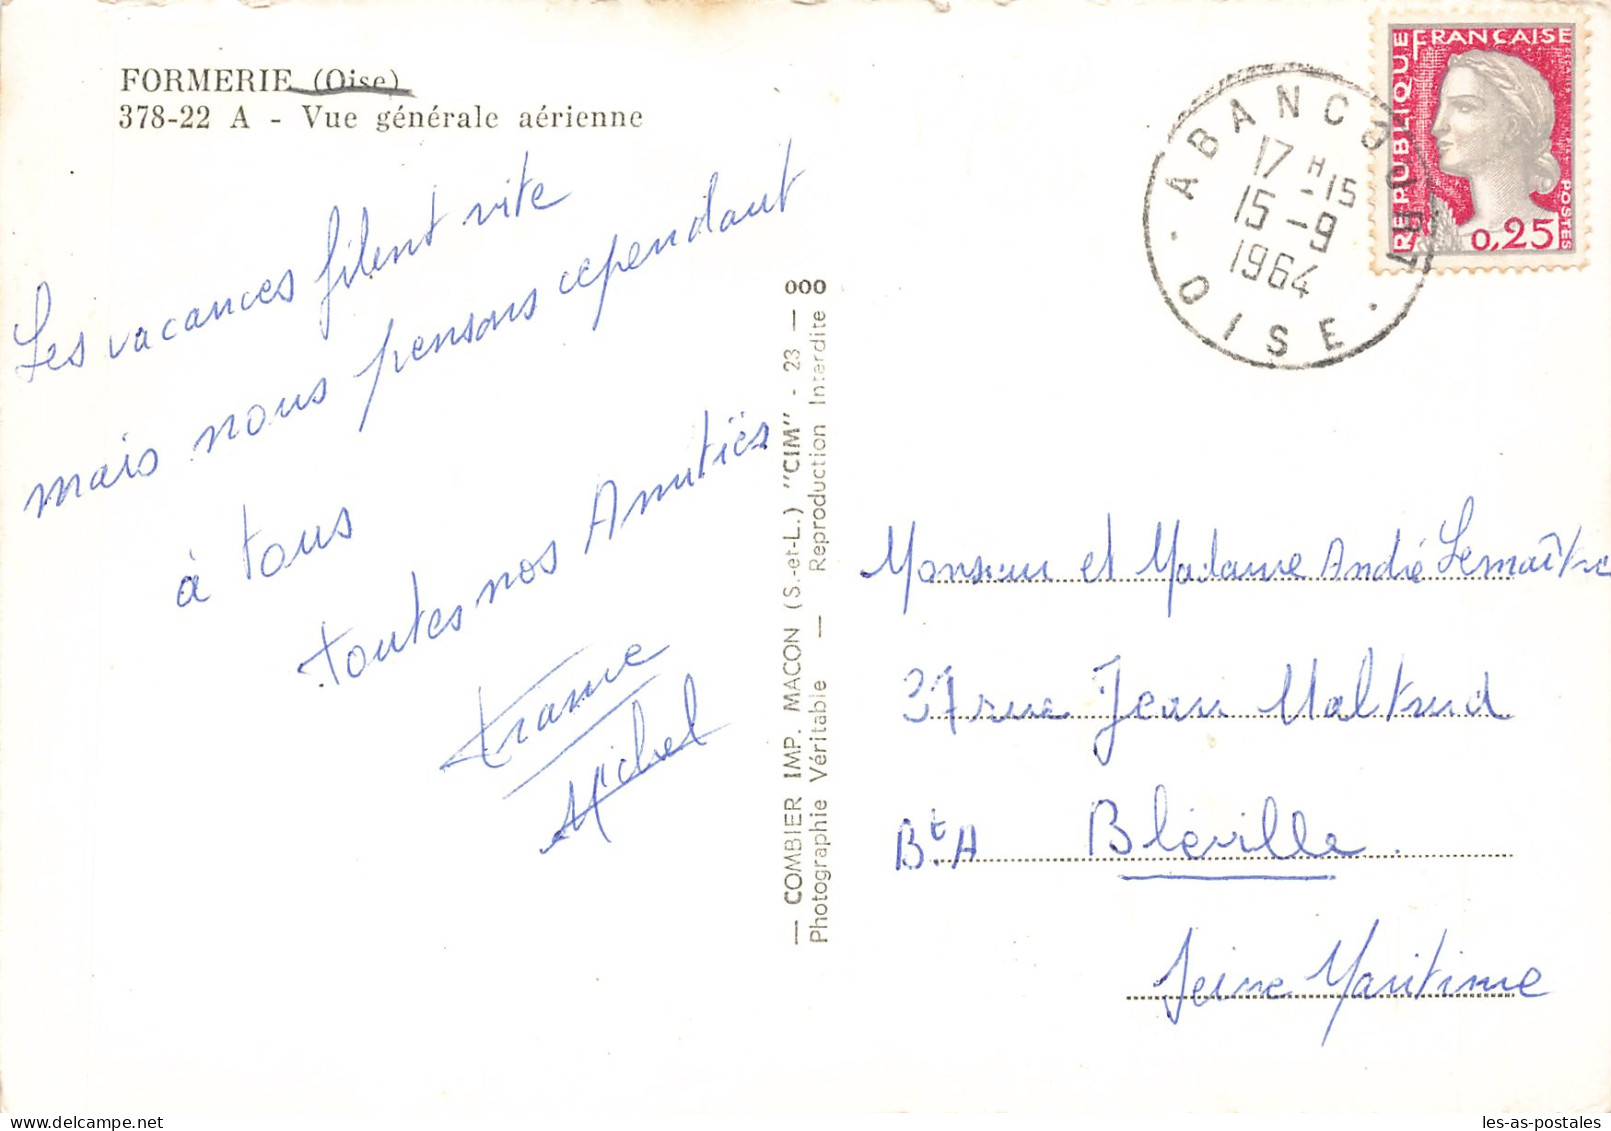 FORMERIE (Oise)
378-22 A - Vue générale aérienne
Les vacances filent vite
mais nous pensons cependant
à tous
Toutes nos Amitiés
Michel
— COMBIER IMP. MACON (S.-et-L.) "CIM" - 23 — 000
Photographie Véritable — Reproduction Interdite
REPUBLIQUE FRANÇAISE
POSTES
0,25
ABANCOURT
17 H -15
15 -9
1964
OISE
Monsieur et Madame André Lemaître
27 rue Jean Maltrud
Bt A Bléville.
Seine Maritime
les-as-postales